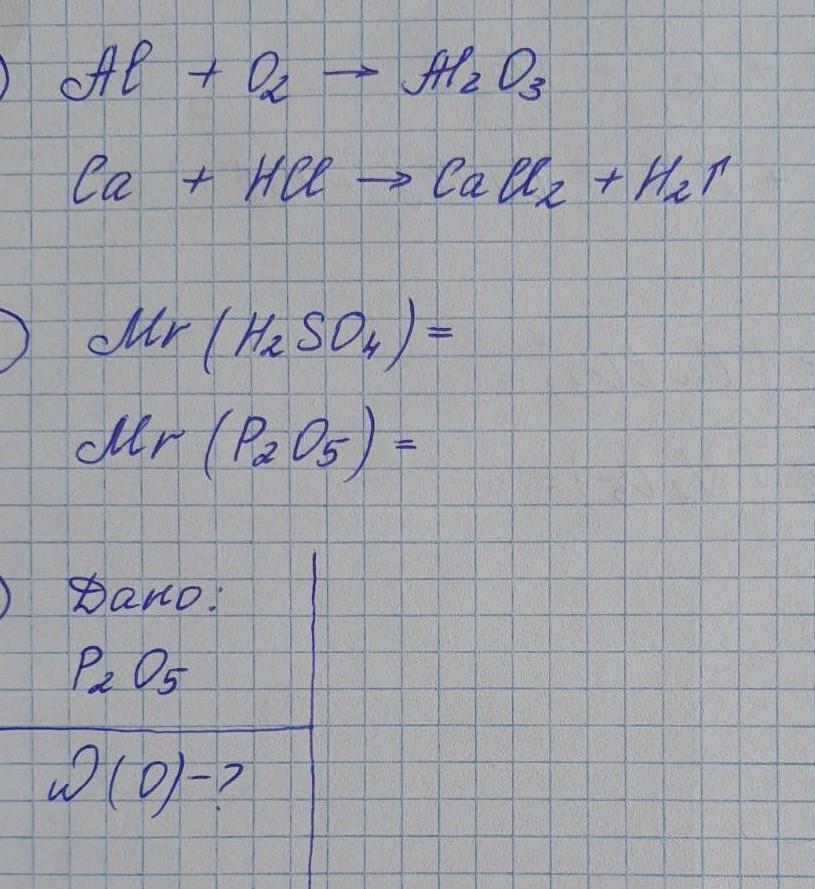 ) Al + O₂ → Al₂O₃
Ca + HCl → CaCl₂ + H₂↑
) Mr (H₂SO₄) =
Mr (P₂O₅) =
) Дано:
P₂O₅
ω(O)-?